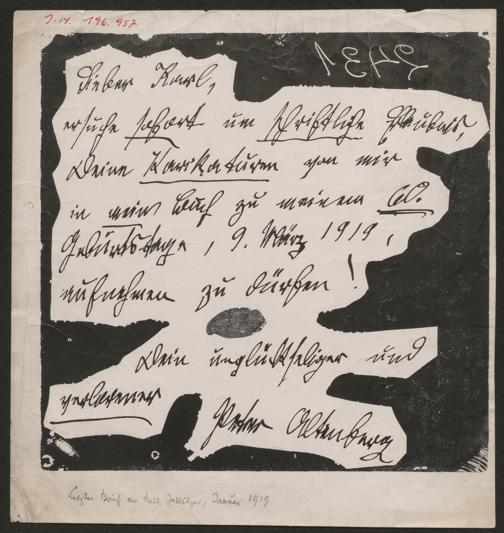 J.N. 196.952
2431
Lieber Karl,
ersuche sofort um schriftliche Erlaubnis,
Deine Karikaturen von mir
in mein Buch zu meinem 60.
Geburtstage, 9. März 1919,
aufnehmen zu dürfen!
Dein unglückseliger und
verlorener
Peter Altenberg
letzter Brief an, Januar 1919